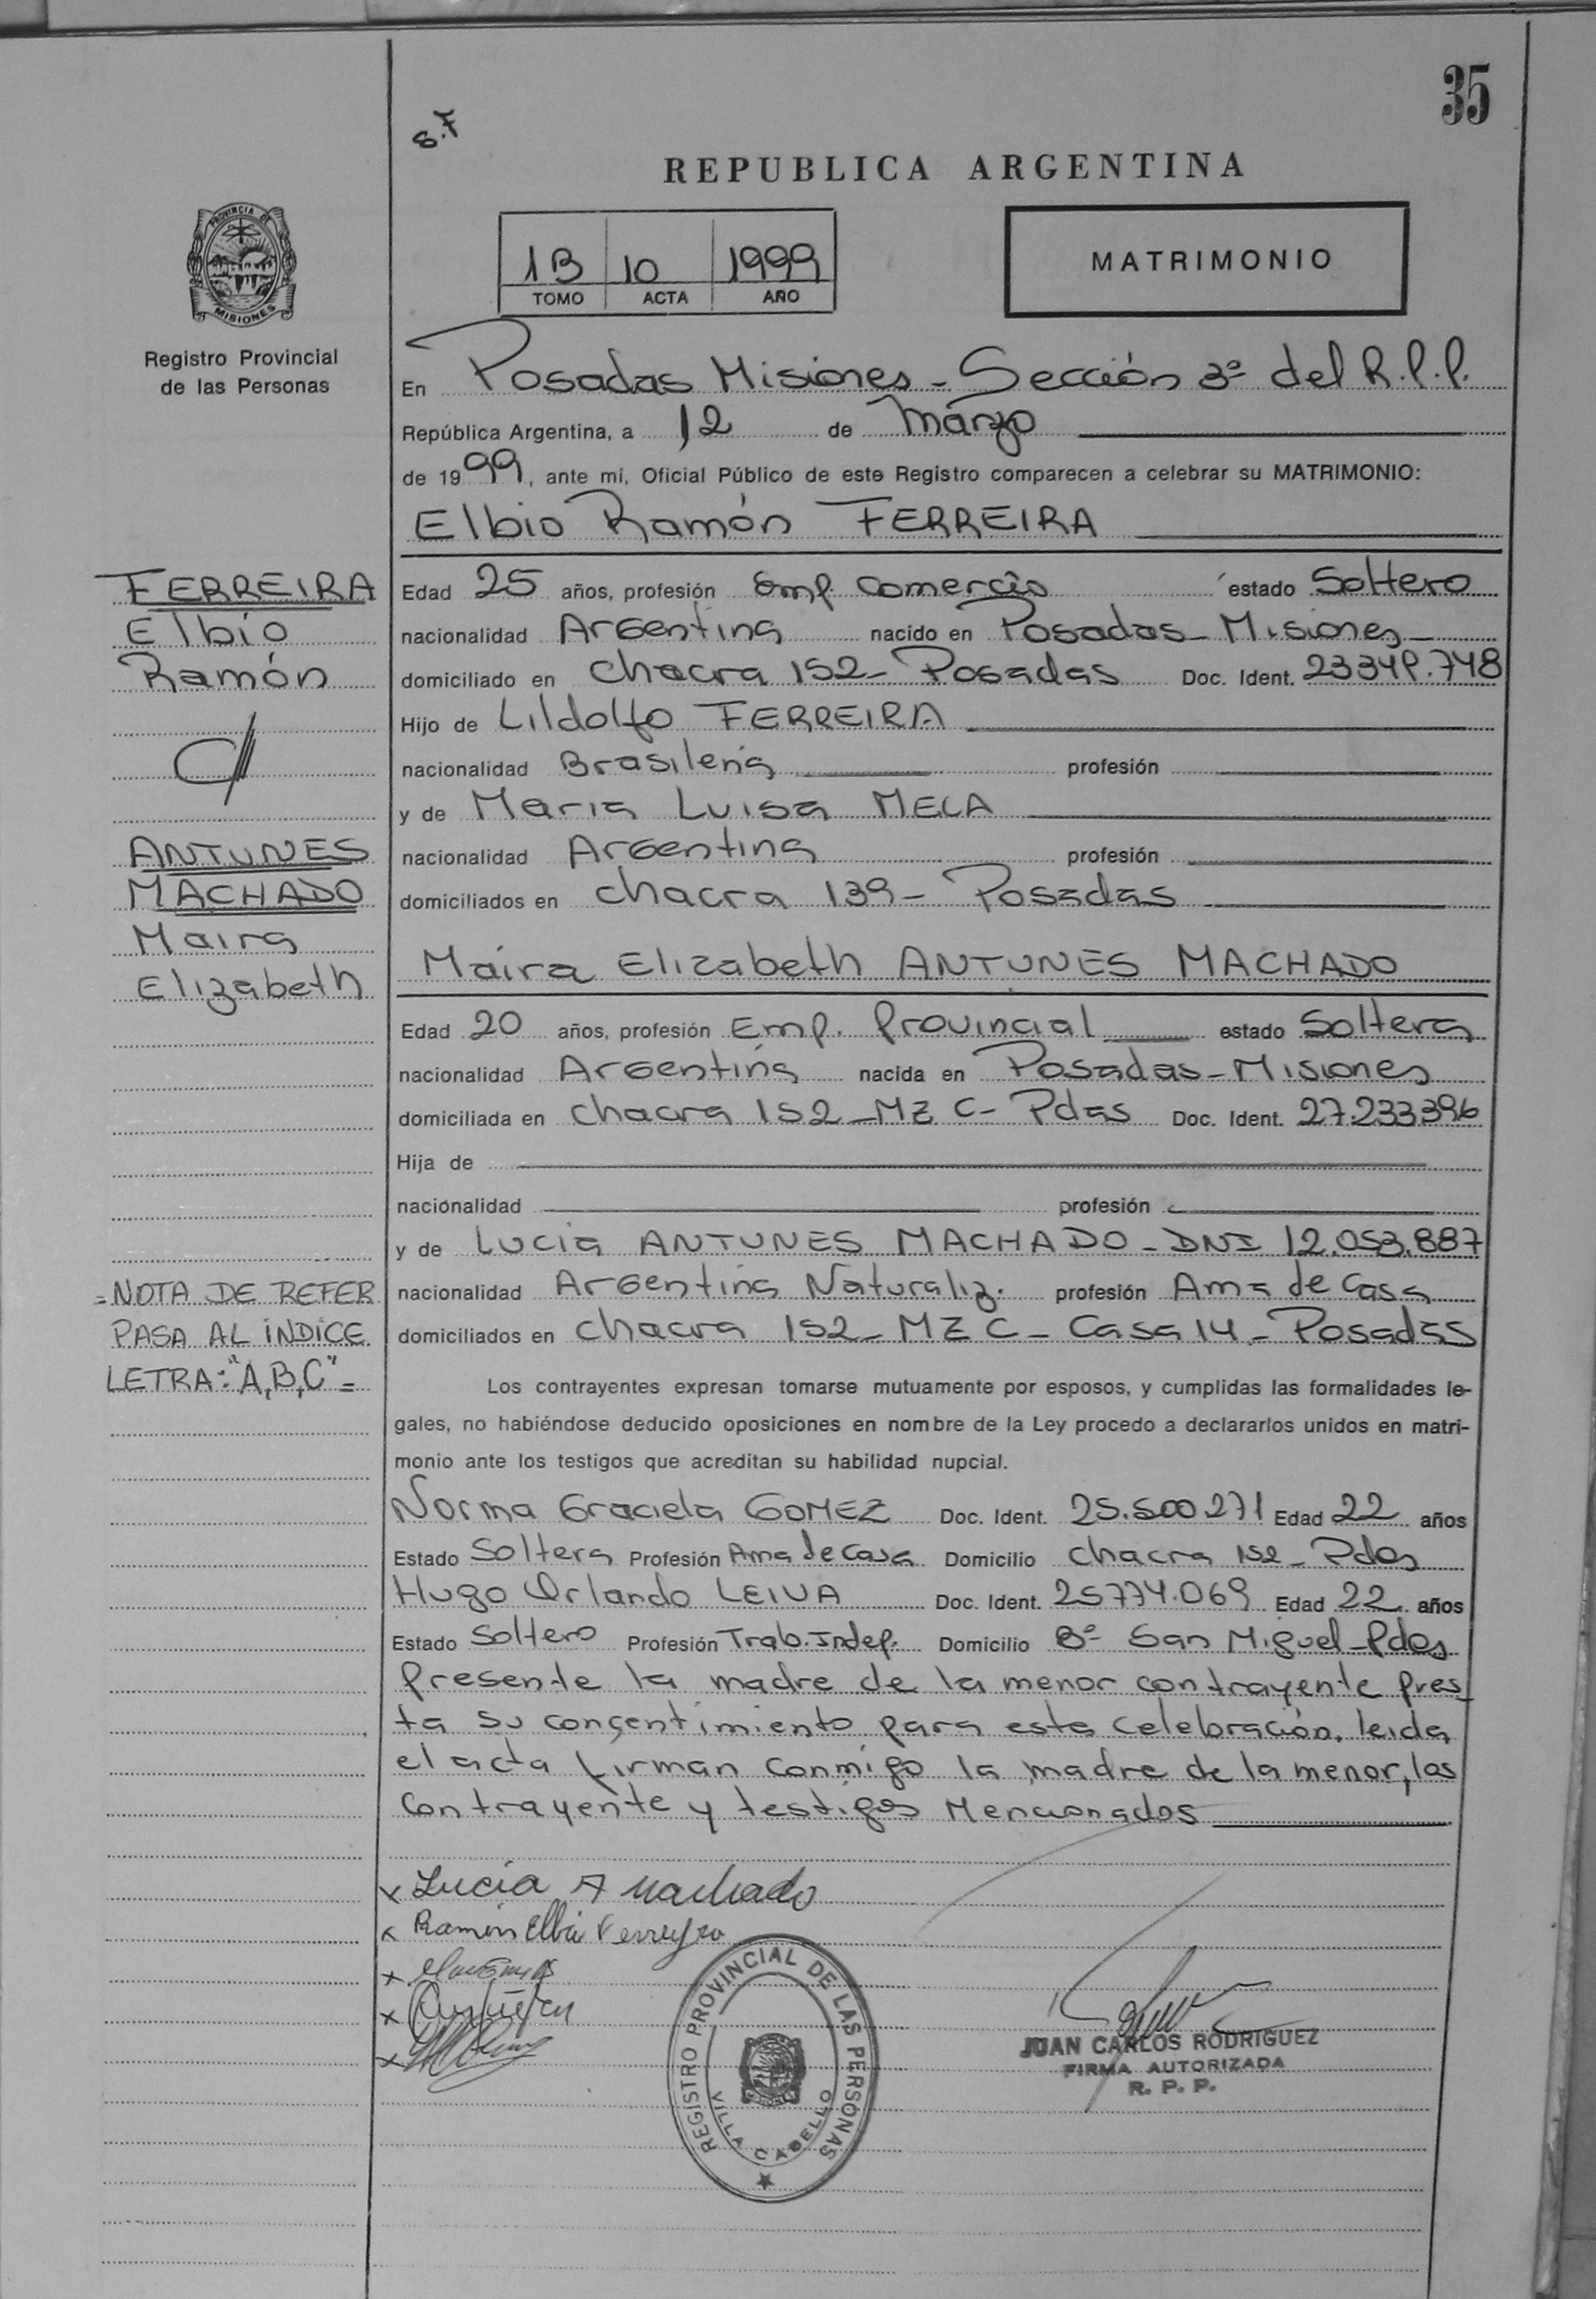 35
8.7
REPUBLICA ARGENTINA
1B 10 1999
TOMO ACTA AÑO
MATRIMONIO
PROVINCIA DE
MISIONES
Registro Provincial
de las Personas
En Posadas Misiones - Sección 3º del R.P.P.
República Argentina, a 12 de Marzo
de 1999, ante mí, Oficial Público de este Registro comparecen a celebrar su MATRIMONIO:
Elbio Ramón FERREIRA
FERREIRA
Elbio
Ramón
Edad 25 años, profesión Emp. Comercio estado Soltero
nacionalidad Argentina nacido en Posadas - Misiones
domiciliado en Chacra 152 - Posadas Doc. Ident. 23349.748
Hijo de Lildolfo FERREIRA
nacionalidad Brasileña profesión
y de Maria Luisa MELA
nacionalidad Argentina profesión
domiciliados en Chacra 139 - Posadas
ANTUNES
MACHADO
Maira
Elizabeth
Maira Elizabeth ANTUNES MACHADO
Edad 20 años, profesión Emp. Provincial estado Soltera
nacionalidad Argentina nacida en Posadas - Misiones
domiciliada en Chacra 152 - MZ C - Pdas Doc. Ident. 27.233396
Hija de
nacionalidad profesión
y de Lucia ANTUNES MACHADO - DNI 12.053.887
nacionalidad Argentina Naturaliz. profesión Ama de Casa
domiciliados en Chacra 152 - MZ C - Casa 14 - Posadas
= NOTA DE REFER
PASA AL INDICE
LETRA: "A,B,C" =
Los contrayentes expresan tomarse mutuamente por esposos, y cumplidas las formalidades le-
gales, no habiéndose deducido oposiciones en nombre de la Ley procedo a declararlos unidos en matri-
monio ante los testigos que acreditan su habilidad nupcial.
Norma Graciela GOMEZ Doc. Ident. 25.500.271 Edad 22 años
Estado Soltera Profesión Ama de Casa Domicilio Chacra 152 - Pdas
Hugo Orlando LEIVA Doc. Ident. 25774.069 Edad 22 años
Estado Soltero Profesión Trab. Indep. Domicilio Bº San Miguel - Pdas
Presente la madre de la menor contrayente pres-
ta su consentimiento para esta celebración. leida
el acta firman conmigo la madre de la menor, los
contrayente y testigos Mencionados
x Lucia A Machado
x Ramón Elbio Ferreyra
x
x
x
REGISTRO PROVINCIAL DE LAS PERSONAS
VILLA CABELLO
JUAN CARLOS RODRIGUEZ
FIRMA AUTORIZADA
R. P. P.